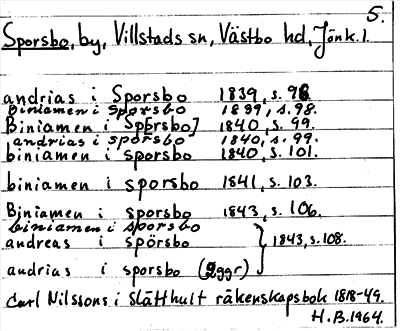 5.
Sporsbo, by, Villstads sn, Västbo hd, Jönk. l.
andrias i Sporsbo 1839, s. 98
Biniamen i sporsbo 1839, s. 98.
Biniamen i Sp[rsbo] 1840, s. 99.
andrias i sporsbo 1840, s. 99.
biniamen i sporsbo 1840, s. 101.
biniamen i sporsbo 1841, s. 103.
Biniamen i sporsbo 1843, s. 106.
biniamen i sporsbo
andreas i spörsbo 1843, s. 108.
andrias i sporsbo (2ggr)
Carl Nilssons i Slätthult räkenskapsbok 1818-49.
H.B. 1964.